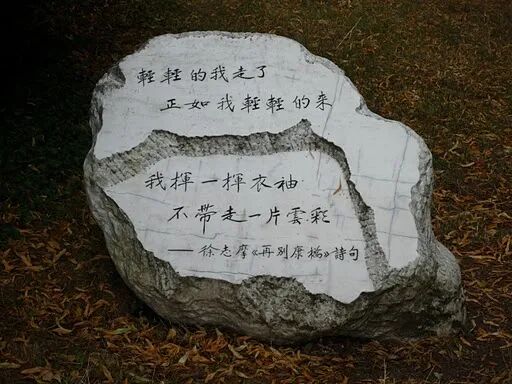 輕輕的我走了
正如我輕輕的来
我揮一揮衣袖
不帶走一片雲彩
——徐志摩《再别康橋》詩句